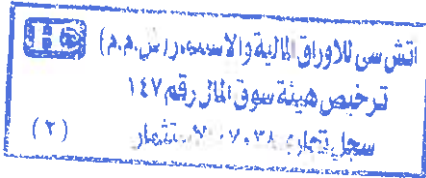 اتش سى للاوراق المالية والاستثمار (ش.م.م)
ترخيص هيئة سوق المال رقم ١٤٧
سجل تجارى استثمار
(٢)